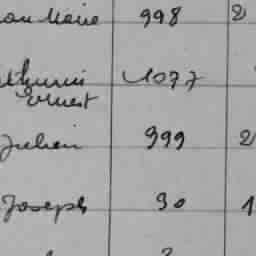 Marie 998 2
Ernest 1077
Julien 999 2
Joseph 90 1